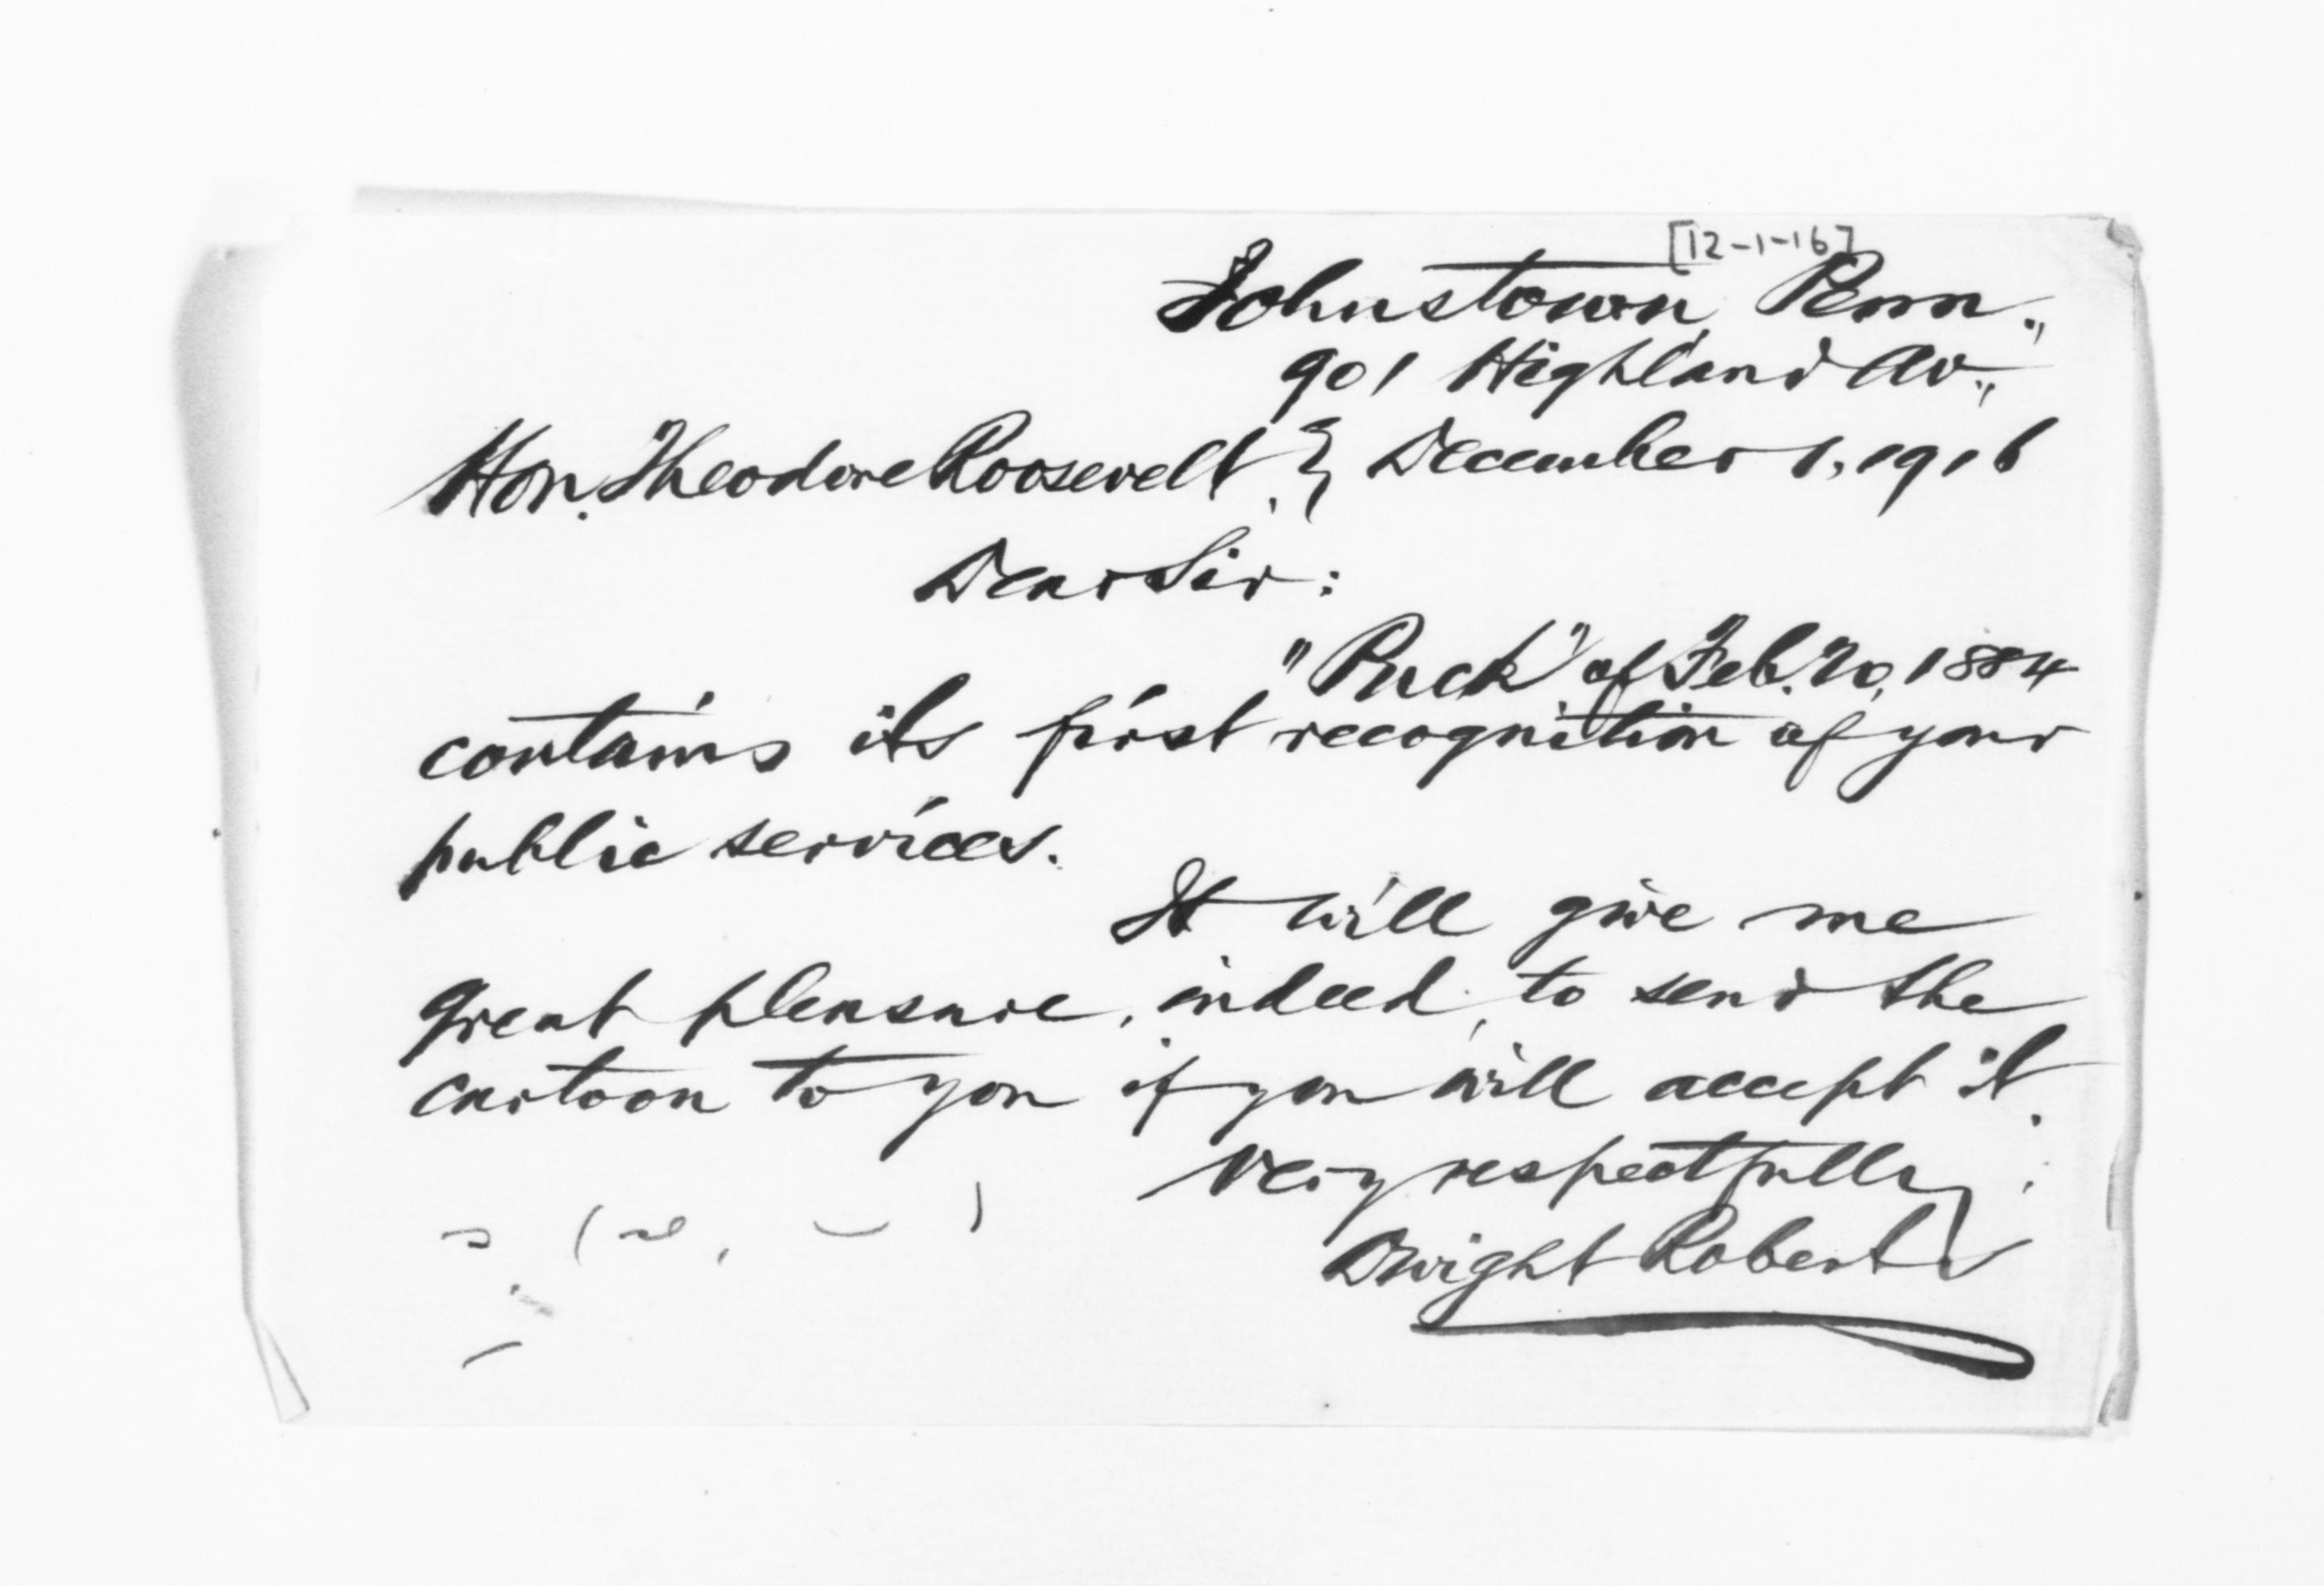 [12-1-16]
Johnstown, Penn.,
901 Highland Av.,
Hon. Theodore Roosevelt, } December 1, 1916
Dear Sir:
"Puck" of Feb. 20, 1884
contains its first recognition of your
public services.
It will give me
great pleasure, indeed, to send the
cartoon to you if you will accept it.
Very respectfully,
Dwight Roberts